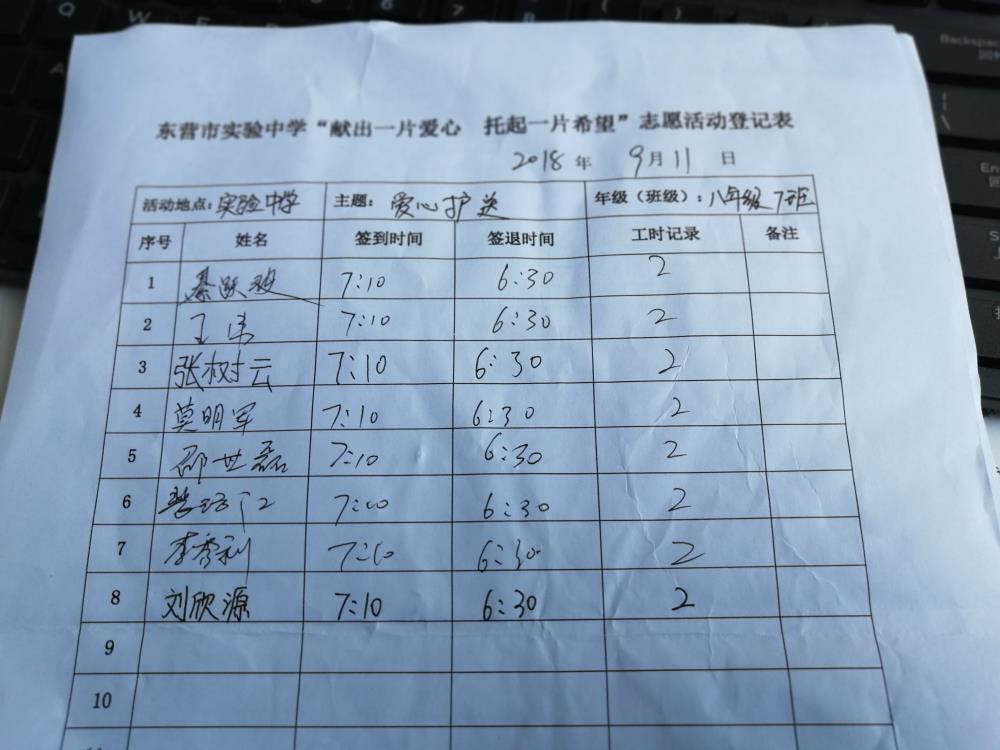 东营市实验中学“献出一片爱心 托起一片希望”志愿活动登记表
2018 年 9月11 日
活动地点:实验中学 主题: 爱心护送 年级（班级）:八年级7班
序号 姓名 签到时间 签退时间 工时记录 备注
1 綦跃 7:10 6:30 2
2 王伟 7:10 6:30 2
3 张树云 7:10 6:30 2
4 莫明军 7:10 6:30 2
5 邵世磊 7:10 6:30 2
6 7:10 6:30 2
7 李秀利 7:10 6:30 2
8 刘欣源 7:10 6:30 2
9
10